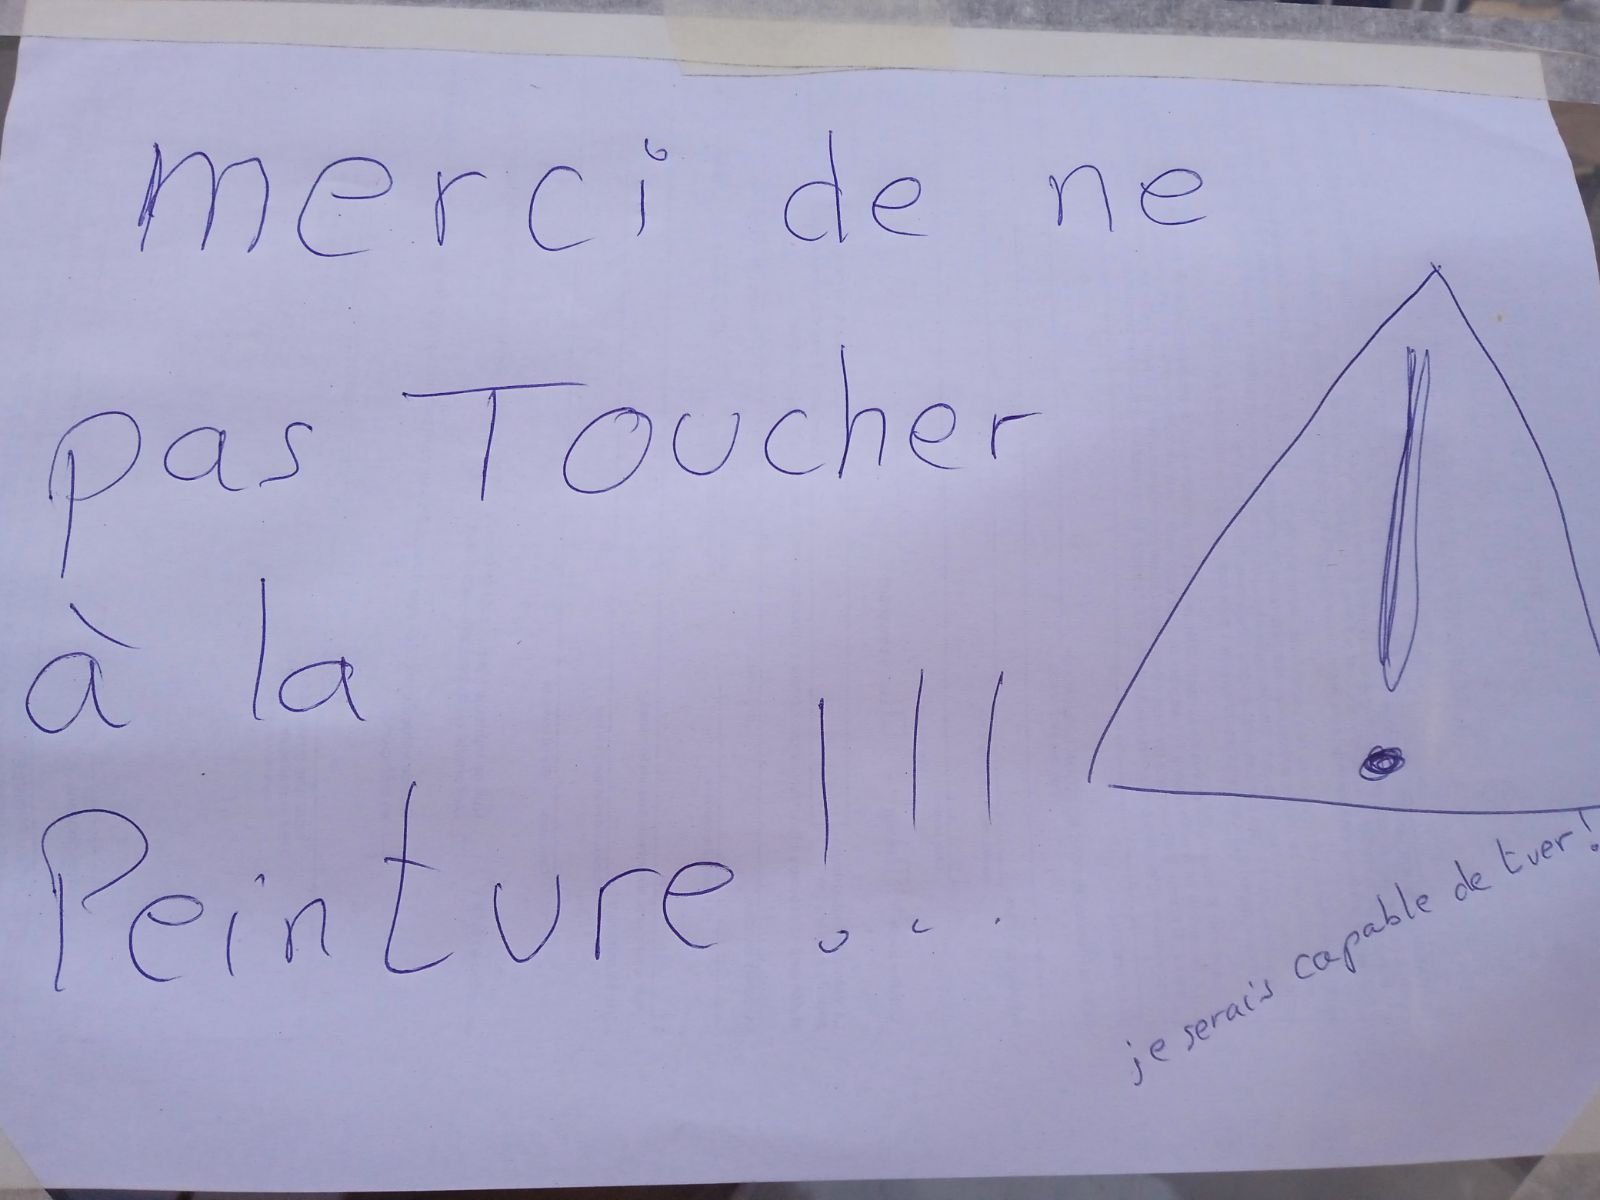 merci de ne
pas Toucher
à la
Peinture !!!
je serais capable de tuer!